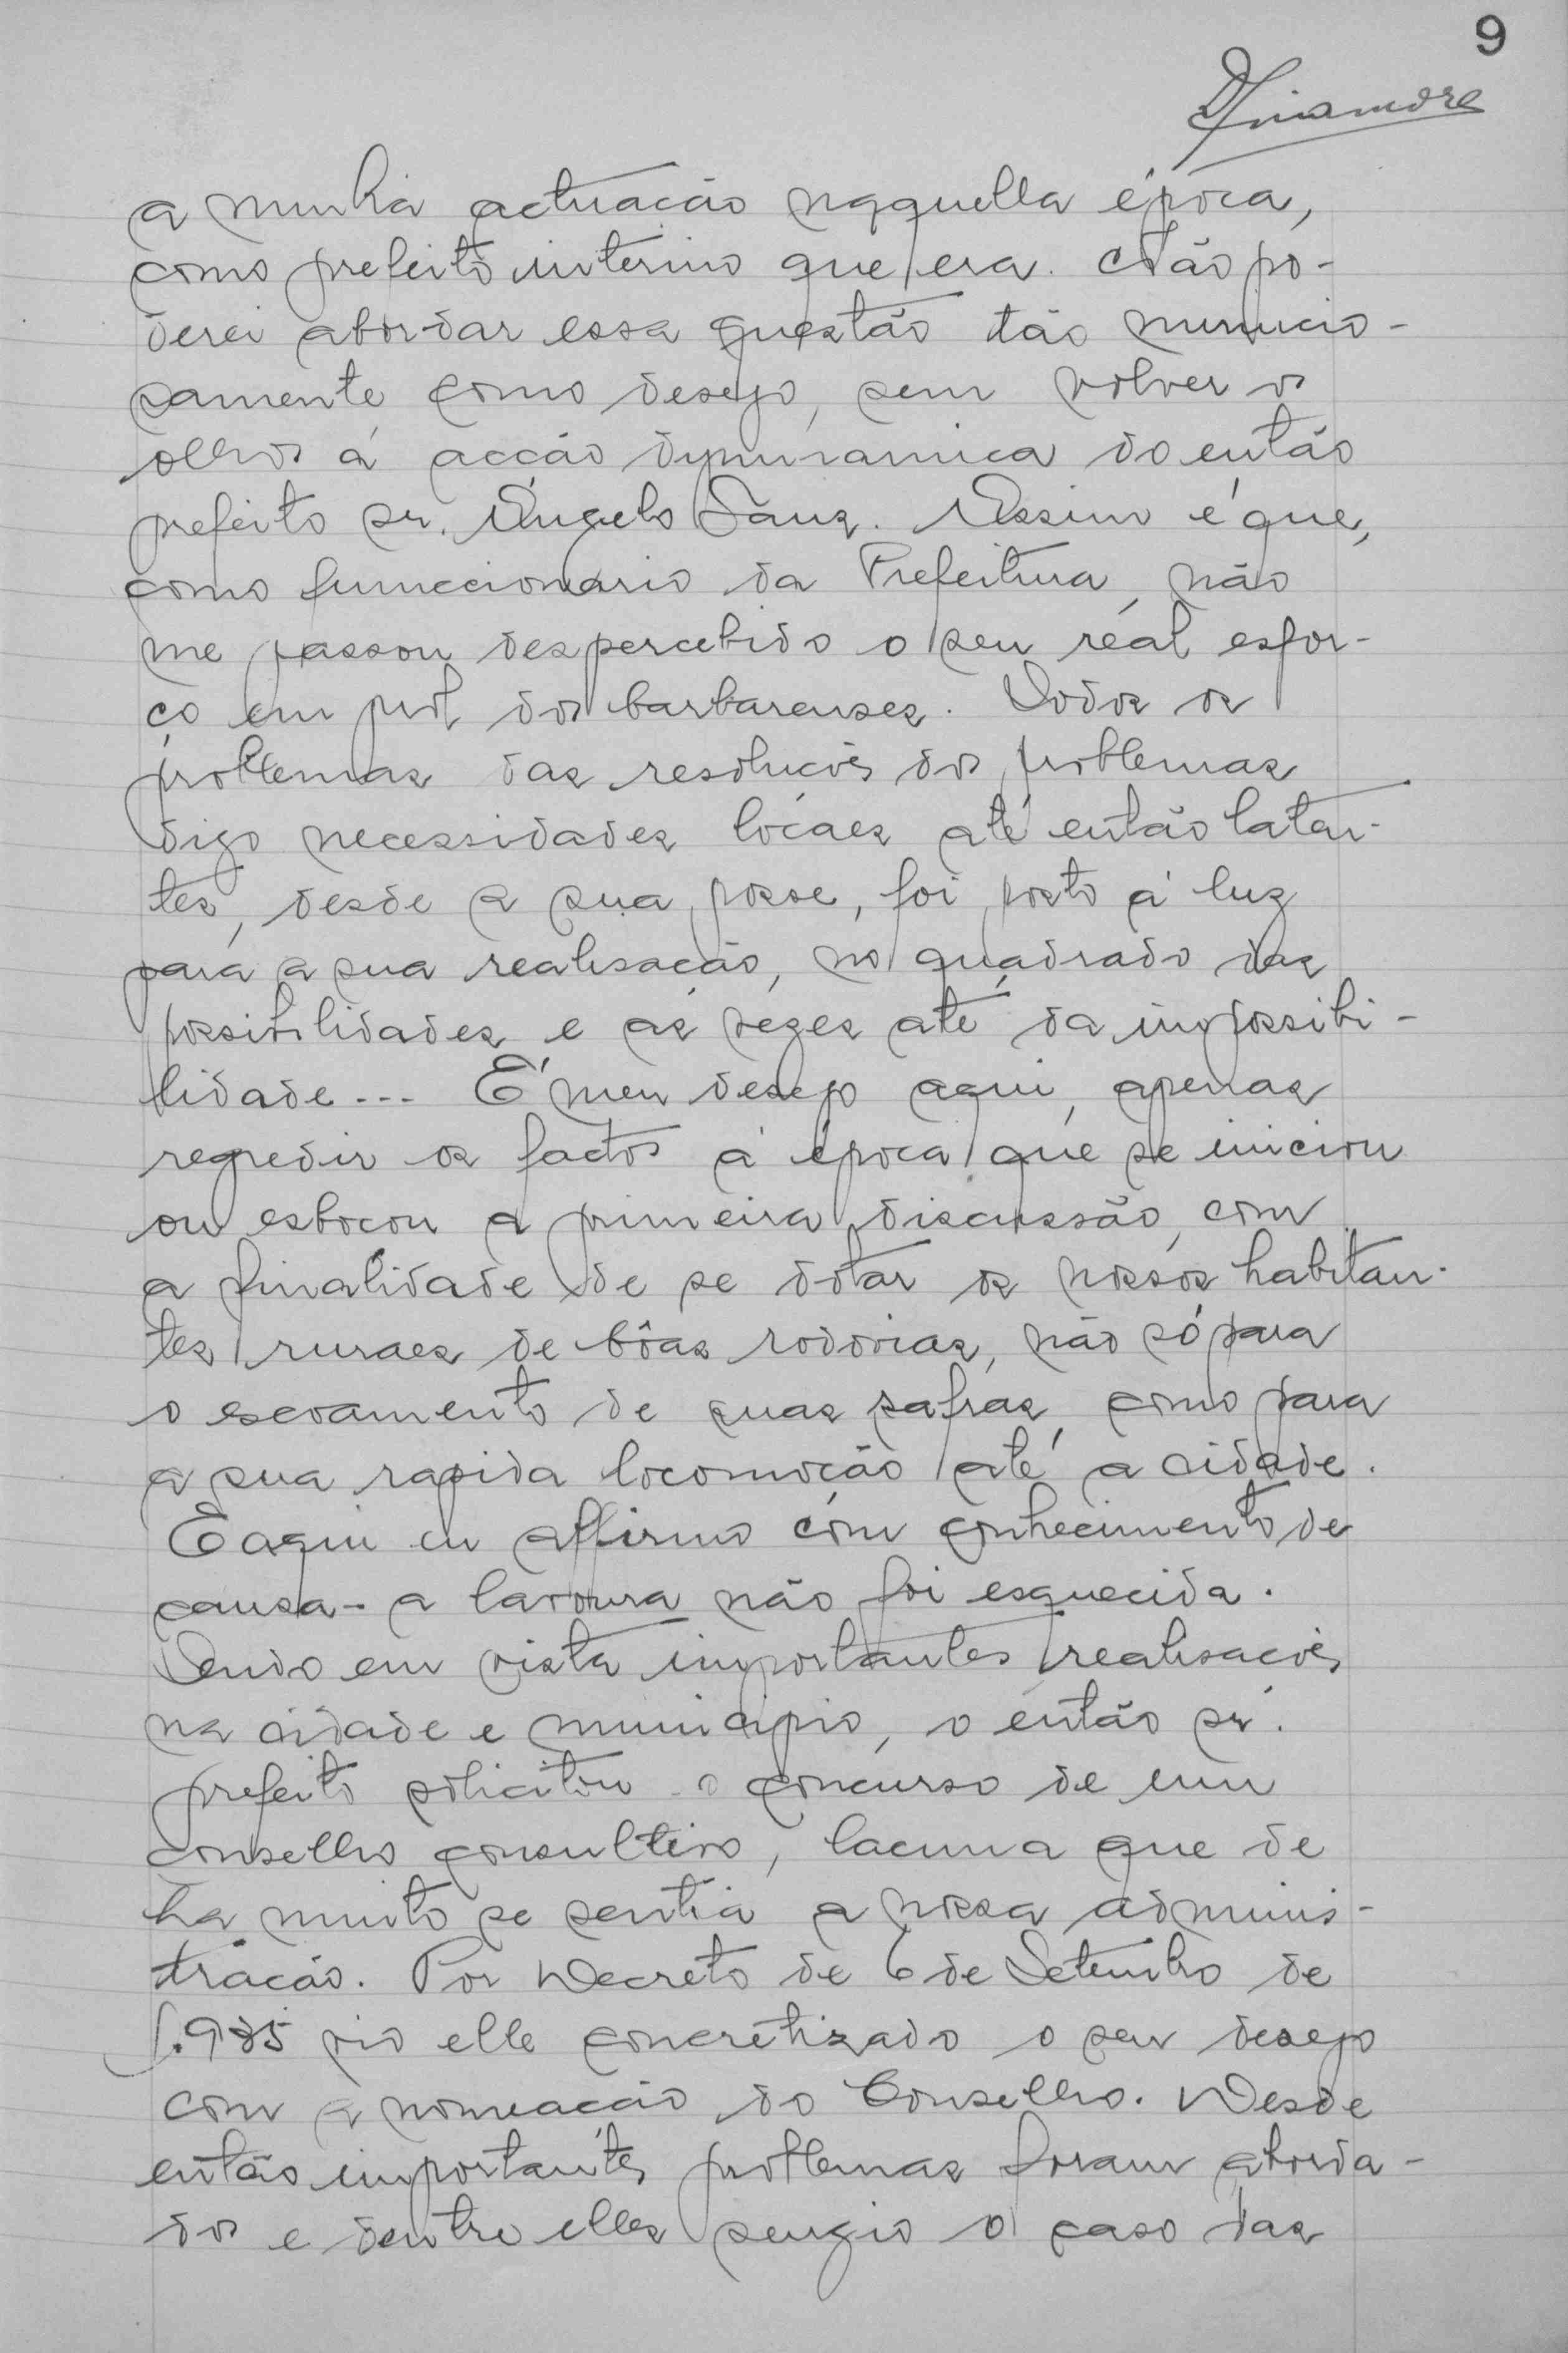 9
a minha actuação naquella época,
como prefeito interino que era. Não po-
derei abordar essa questão tão minucio-
samente como desejo, sem volver os
olhos á acção dynamica do então
prefeito sr. Angelo Sans. Assim é que,
como funccionario da Prefeitura, não
me passou despercebido o seu real esfor-
ço em prol dos barbarenses. Todos os
problemas das resoluções dos problemas
digo necessidades locaes até então laten-
tes, desde a sua posse, foi posto á luz
para a sua realisação, no quadrado das
possibilidades e ás vezes até da impossibi-
lidade... É meu desejo aqui, apenas
regredir os factos á época que se iniciou
ou esboçou a primeira discussão, com
a finalidade de se dotar os nossos habitan-
tes ruraes de bôas rodovias, não só para
o escoamento de suas safras, como para
a sua rapida locomoção até a cidade.
E aqui eu affirmo com conhecimento de
causa - a lavoura não foi esquecida.
Tendo em vista importantes realisações
na cidade e municipio, o então sr.
prefeito solicitou o concurso de um
conselho consultivo, lacuna que de
ha muito se sentia a nossa adminis-
tração. Por Decreto de 6 de Setembro de
1.935 vio elle concretizado o seu desejo
com a nomeação do Conselho. Desde
então importantes problemas foram aborda-
dos e dentre elles surgio o caso das